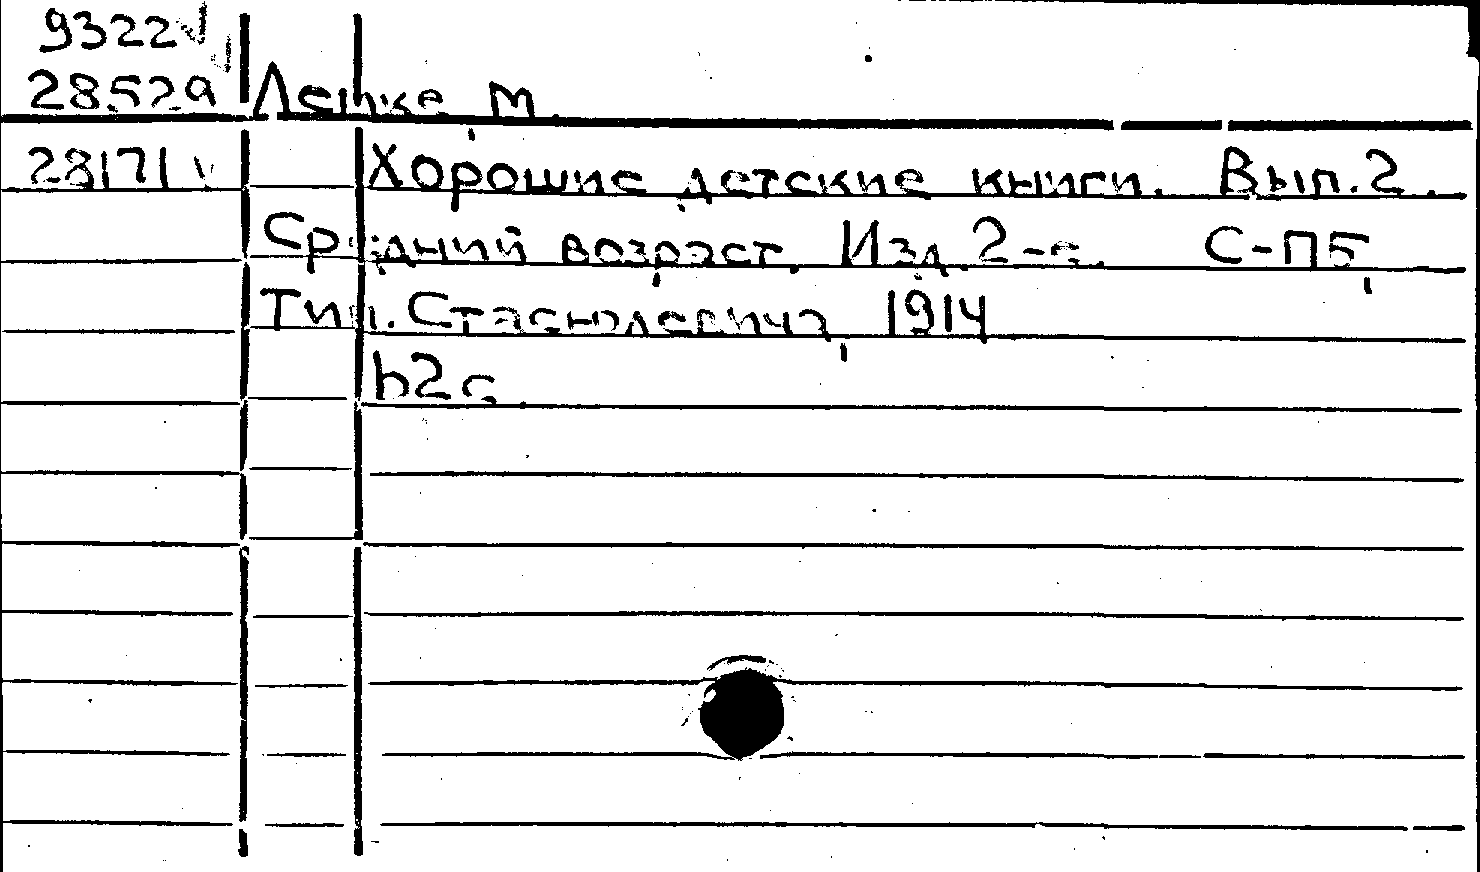 9322
28529 Лемке, М.
28171 Хорошие детские книги. Вып. 2.
Средний возраст. Изд. 2-е. С-ПБ,
Тип. Стасюлевича, 1914
62с.